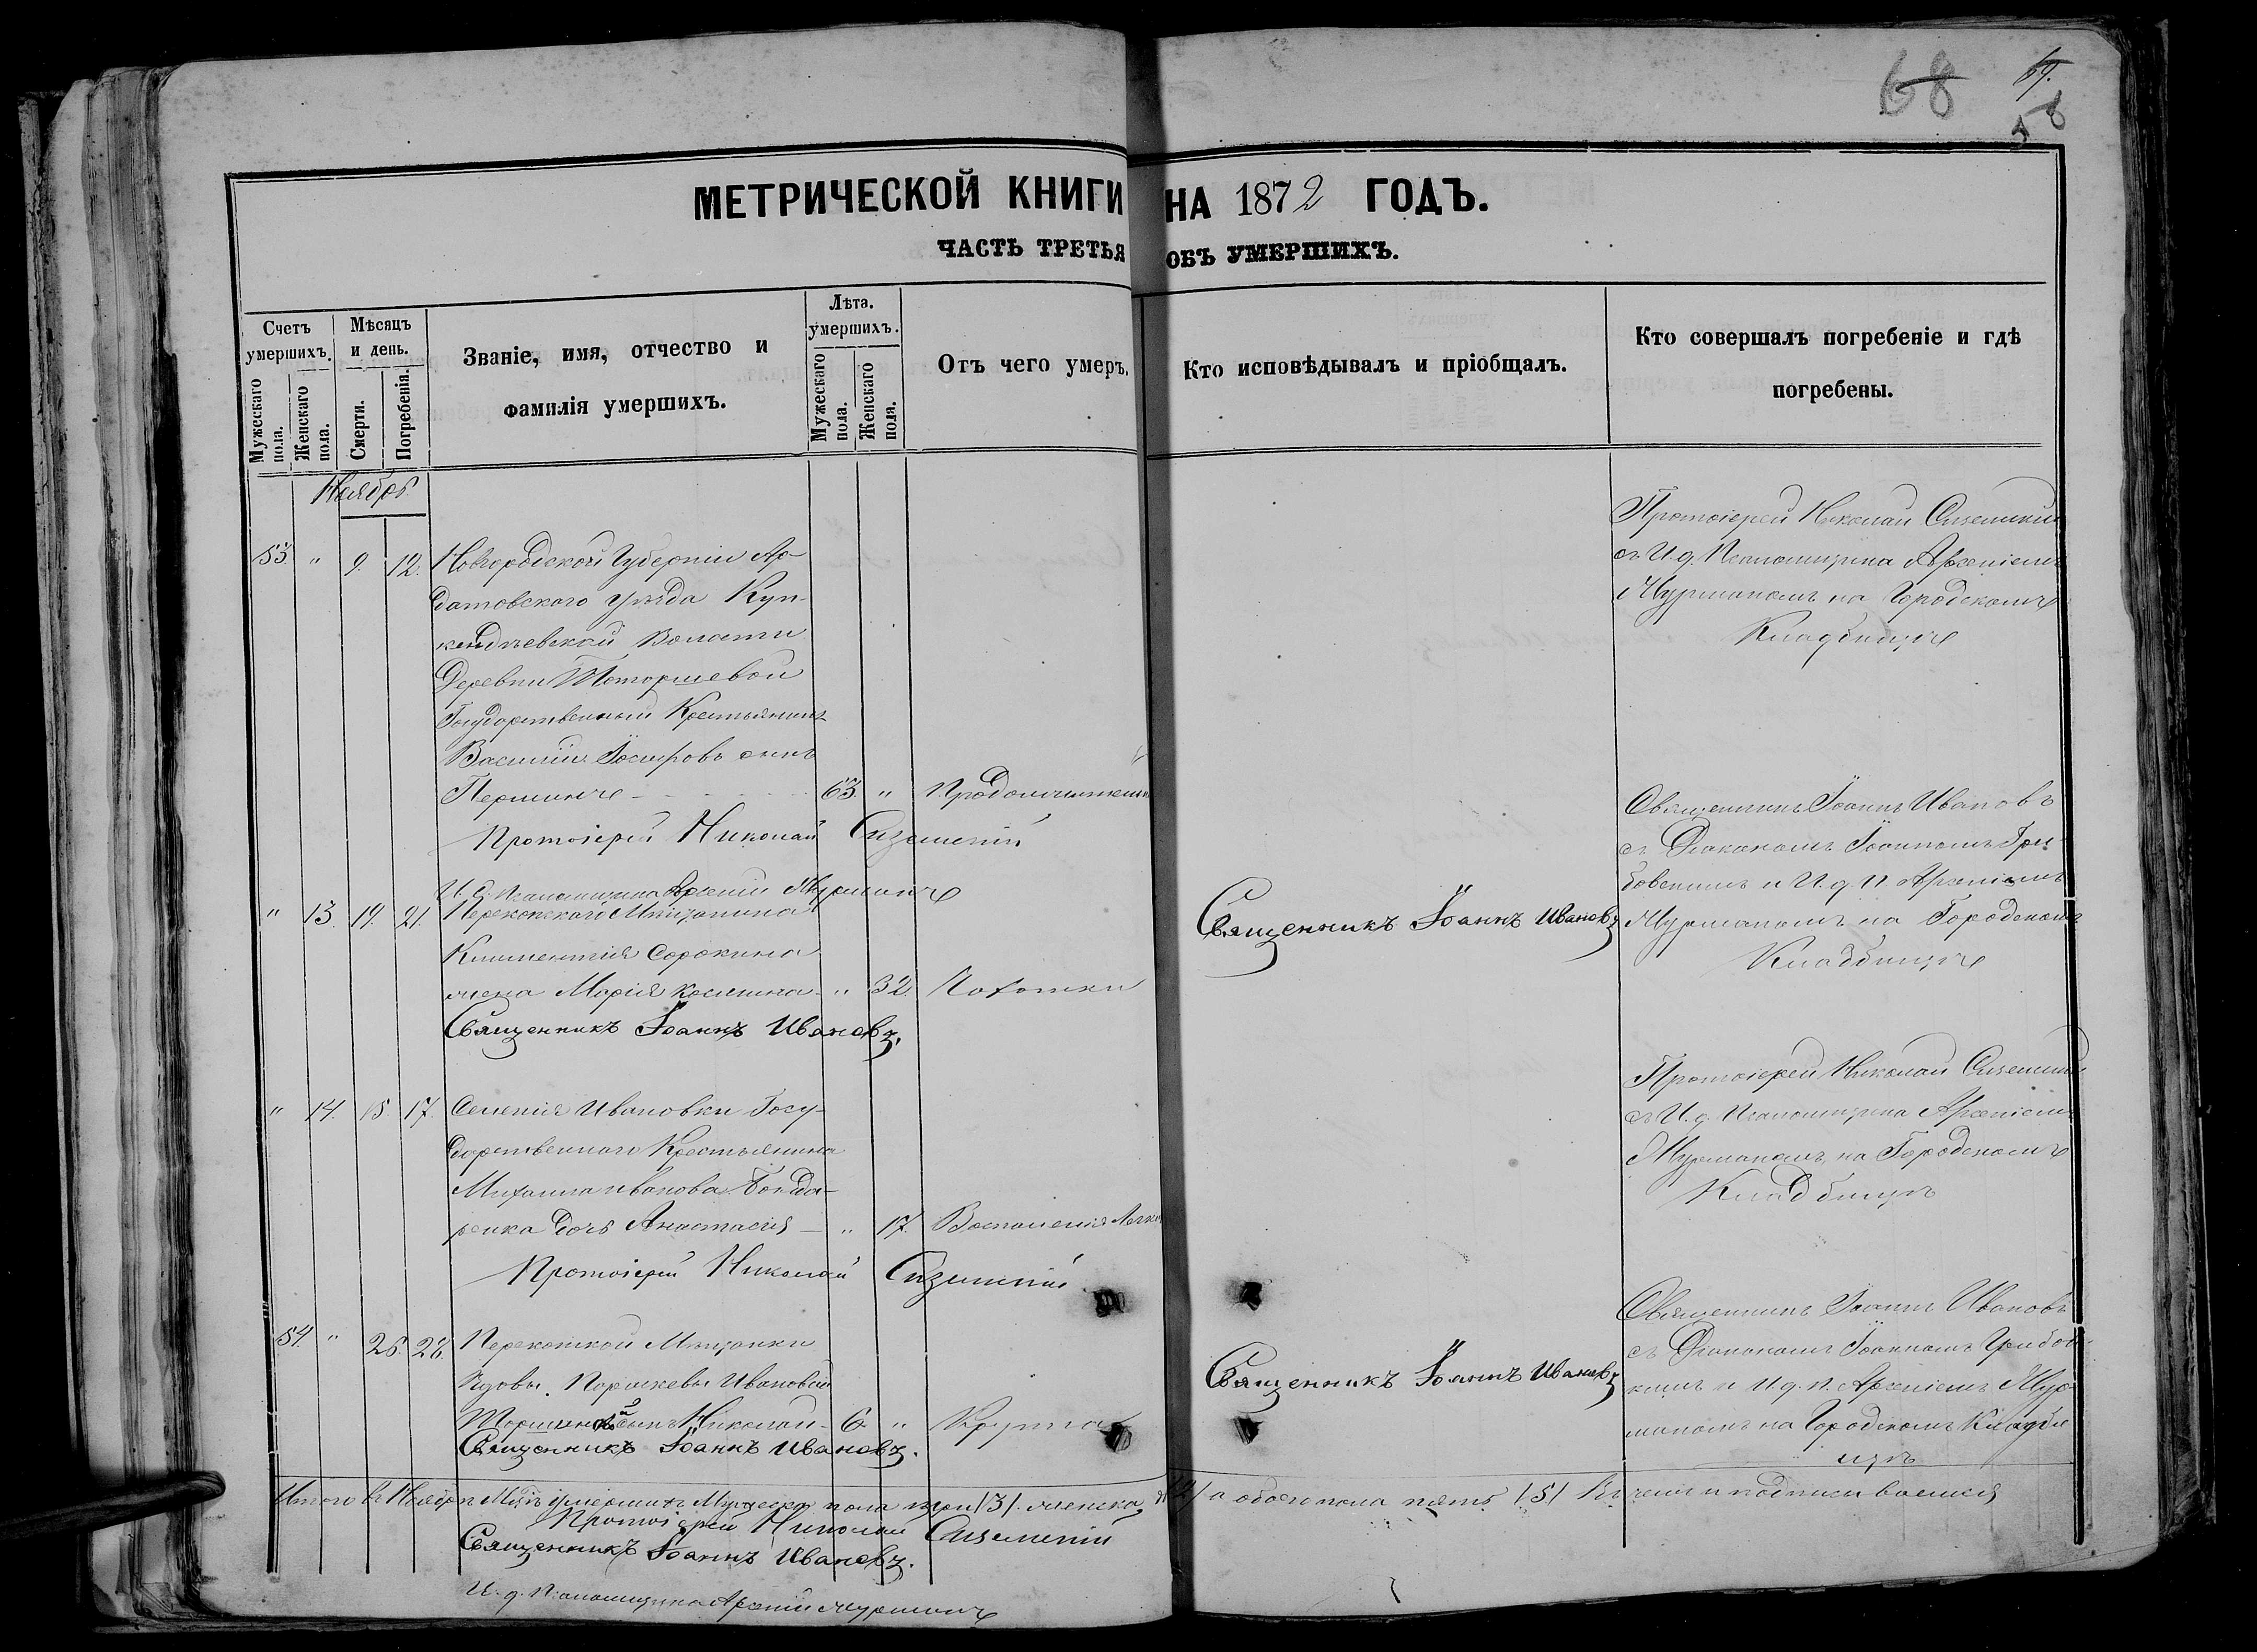 68
69.
58
МЕТРИЧЕСКОЙ КНИГИ НА 1872 ГОДЪ.
ЧАСТЬ ТРЕТЬЯ ОБЪ УМЕРШИХЪ.
Счетъ умершихъ.
Мужескаго пола.
Женскаго пола.
Мѣсяцъ и день.
Смерти.
Погребенія.
Званіе, имя, отчество и
фамилія умершихъ.
Лѣта. умершихъ.
Мужескаго пола.
Женскаго пола.
Отъ чего умеръ.
Кто исповѣдывалъ и пріобщалъ.
Кто совершалъ погребеніе и гдѣ
погребены.
Ноябрь
53. " 9. 12. Новгородской Губерніи Ар-
датовскаго уѣзда
Волости
Деревни
Государственный Крестьянинъ
Василій сынъ
63. "
Протоіерей Николай
Протоіерей Николай
съ И. д. Псаломщика Арсеніемъ
Мурманомъ на Городскомъ
Кладбищѣ
И. д. Псаломщика Арсеній
" 13. 19. 21. Перекопскаго Мѣщанина
Климентія Сорокина
жена Марія " 32. Чахотки
Священникъ Іоаннъ Ивановъ.
Священникъ Іоаннъ Ивановъ
Священникъ Іоаннъ Ивановъ
съ Діакономъ Іоанномъ Гри-
бовскимъ и И. д. П Арсеніемъ
Мурманомъ на Городскомъ
Кладбищѣ
" 14. 15 17. Селенія Ивановки Госу-
дарственнаго Крестьянина
Михаила Иванова Бонда-
ренка дочь Анастасія — " 17. Воспаленія Легк
Протоіерей Николай
Протоіерей Николай
съ И. д. Псаломщика Арсеніемъ
Мурманомъ на Городскомъ
Кладбищѣ
54. " 26. 28. Перекопской Мѣщанки
Вдовы Параскевы Ивановой
сынъ Николай - 6. " Крупа
Священникъ Іоаннъ Ивановъ.
Священникъ Іоаннъ Ивановъ
Священникъ Іоаннъ Ивановъ
съ Діакономъ Іоанномъ Грибов-
кимъ и И. д. П. Арсеніемъ Мур
маномъ на Городскомъ Кладби
щѣ
Итого въ Ноябрѣ М-цѣ умершихъ Мужеска пола три /3/. женска /2/ а обоего пола пять /5/
Протоіерей Николай
Священникъ Іоаннъ Ивановъ.
И. д. Псаломщика Арсеній